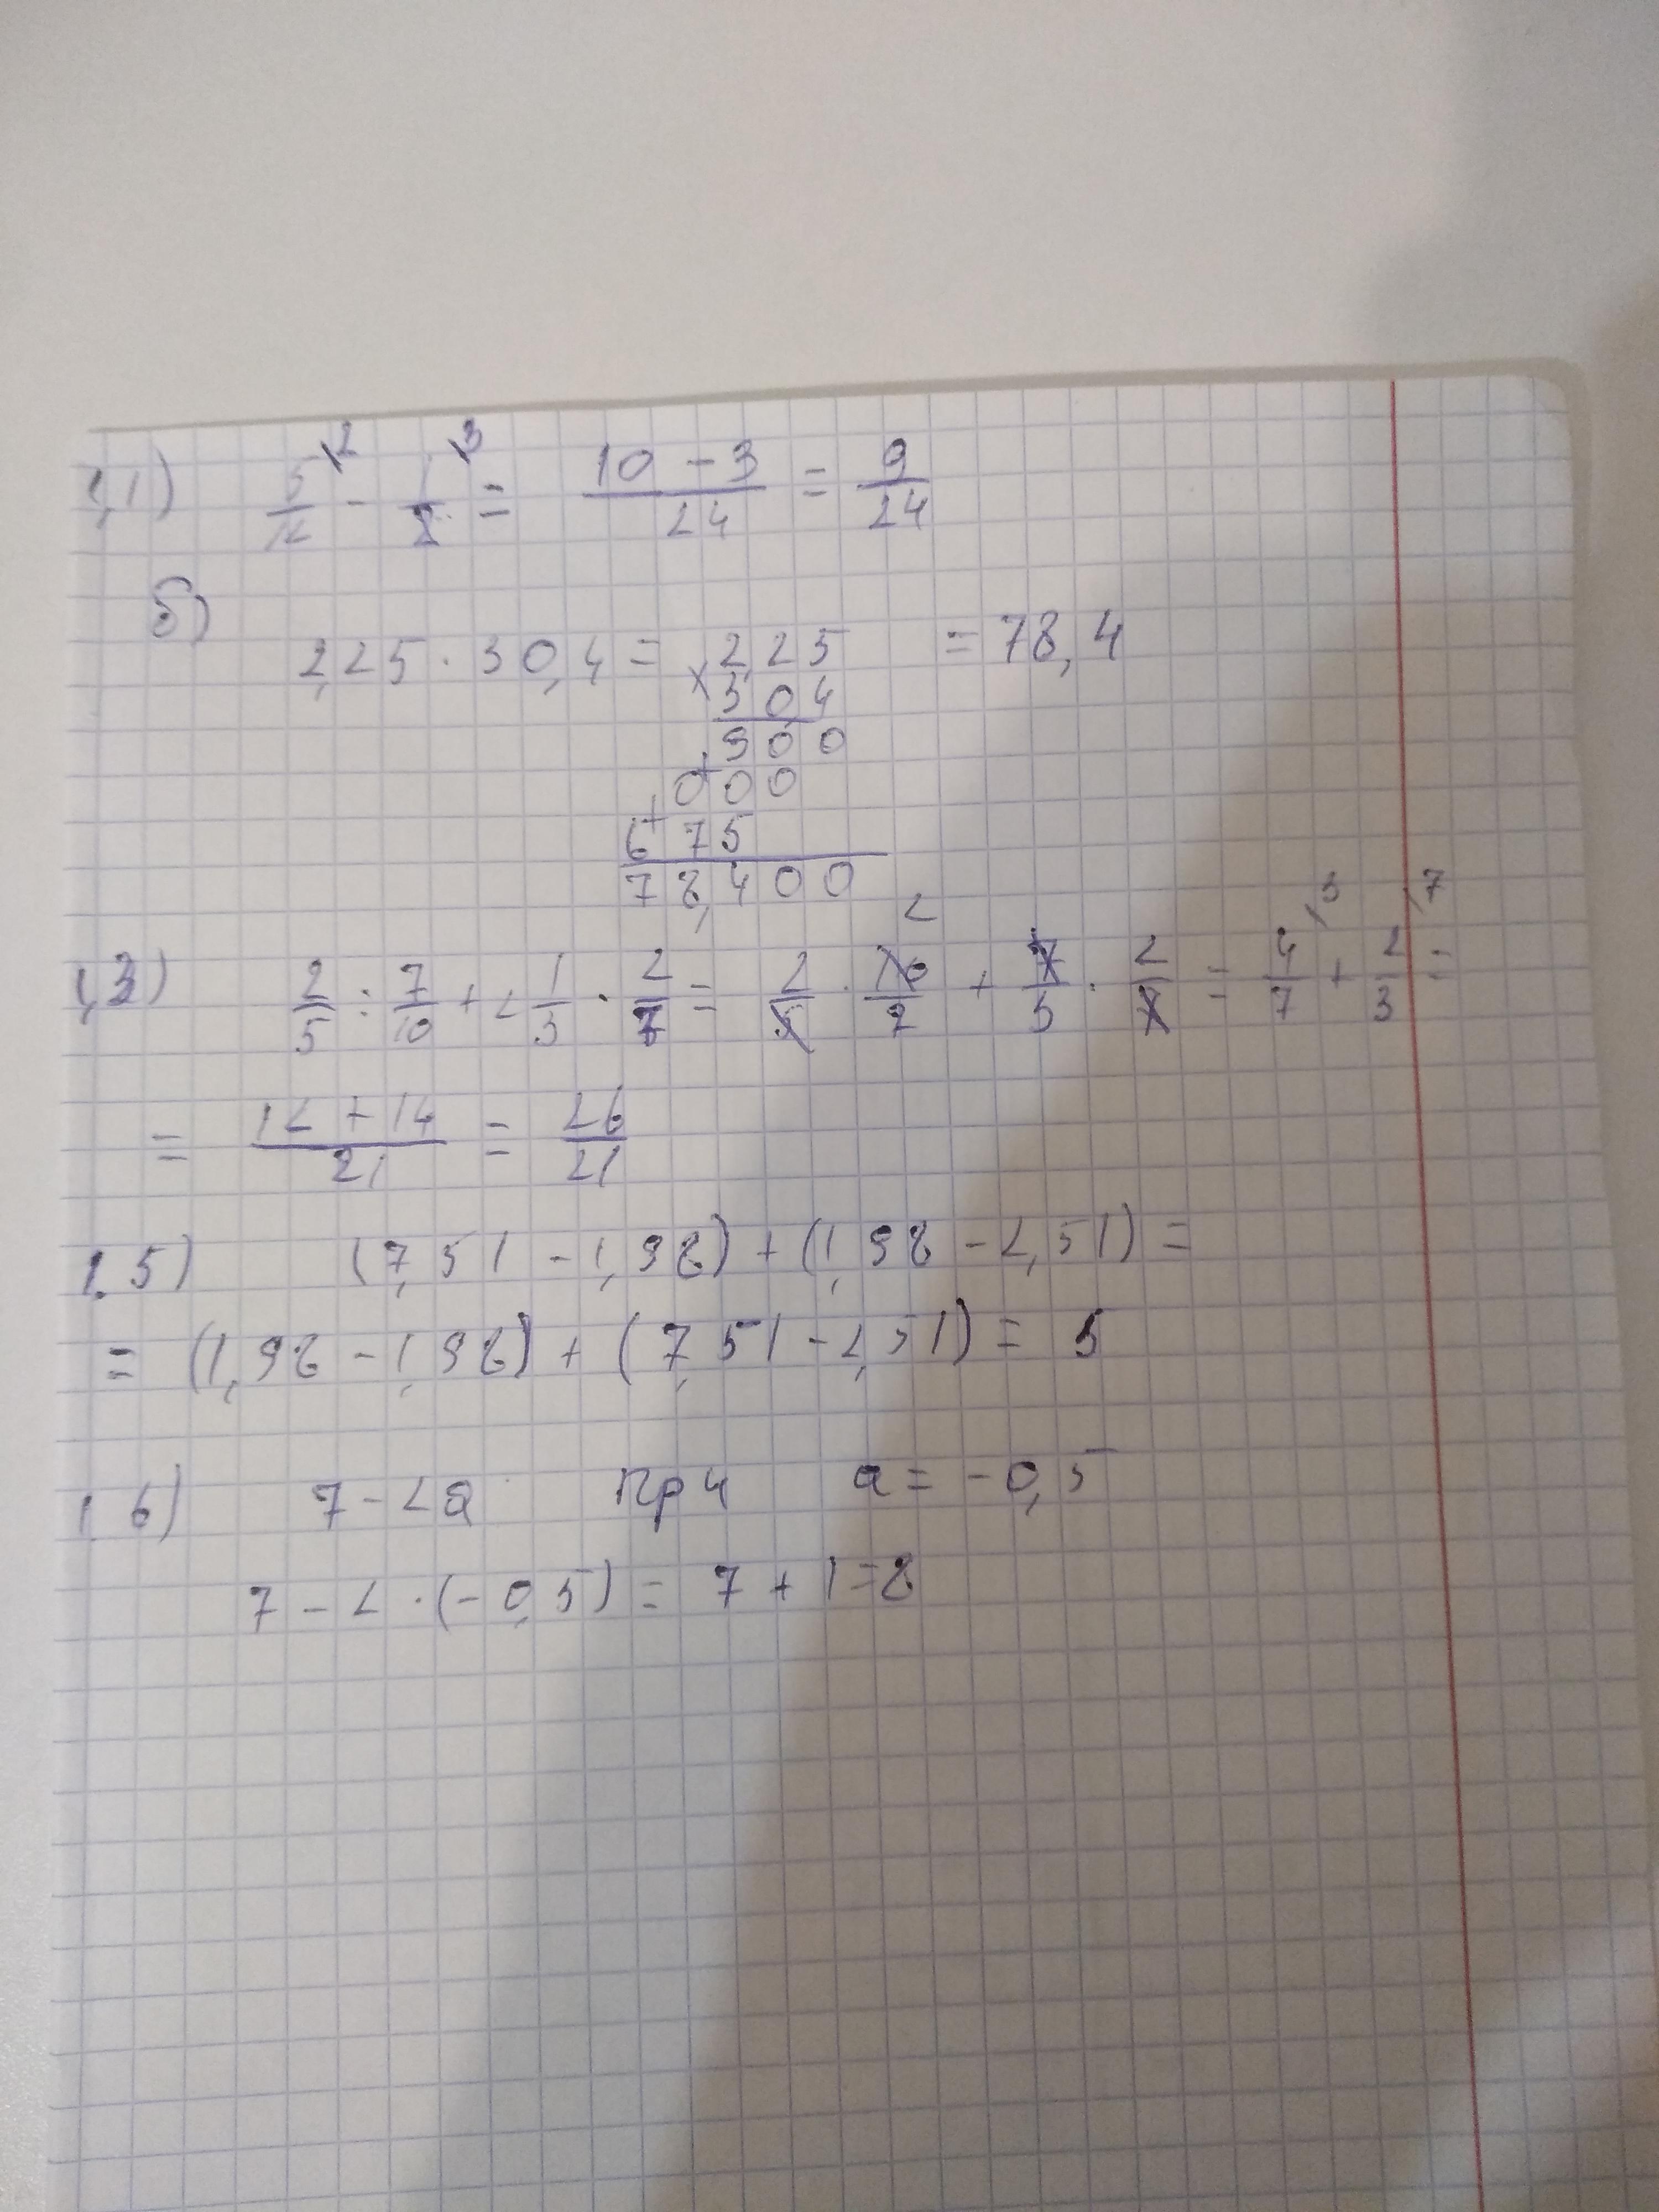 1,1) 5/12 \2 - 1/8 \3 = (10 - 3)/24 = 9/24
б)
2,25 · 30,4 = × 2,25 = 78,4
30,4
900
+ 000
+ 675
78,400
1,3) 2/5 : 7/10 + 2 1/3 · 2/7 = 2/5 · 10/7 2 + 7/3 · 2/7 = 4/7 \3 + 2/3 \7 =
= (12 + 14)/21 = 26/21
1.5) (7,51 - 1,98) + (1,98 - 2,51) =
= (1,98 - 1,98) + (7,51 - 2,51) = 5
1.6) 7 - 2a при a = -0,5
7 - 2 · (-0,5) = 7 + 1 = 8